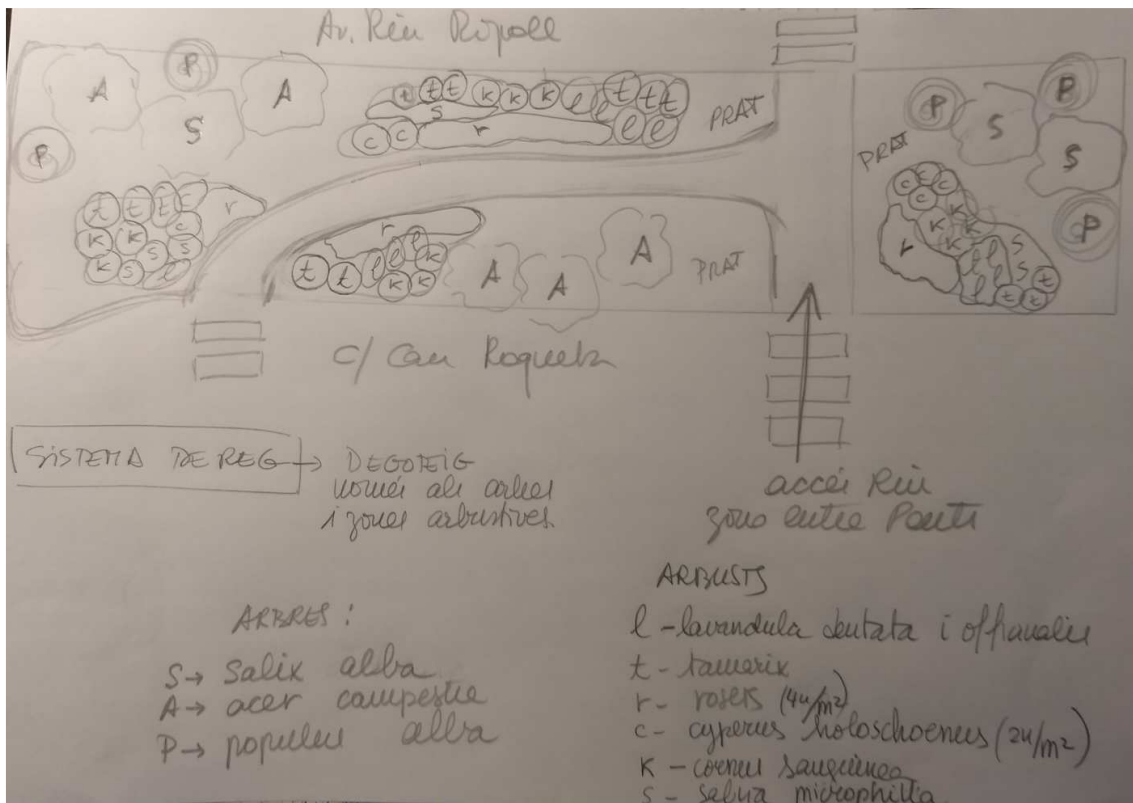 Av. Riu Ripoll
A P A
S
P
t t t t k
k k s s c
k s l
r
t t t k k k l l t t t
s
c c r l l
PRAT
r
t t l l l l k
k k
A A A
PRAT
PRAT
P S P
S
P
c c c
c k
k k k
r
l l s
l l s t
l t t
c/ Can Roqueta
SISTEMA DE REG → DEGOTEIG
només als arbres
i zones arbustives.
accés Riu
zona entre Ponts
ARBRES:
S → salix alba
A → acer campestre
P → populus alba
ARBUSTS
l - lavandula dentata i officinalis
t - tamarix
r - rosers (4u/m²)
c - cyperus holoschoenus (2u/m²)
K - cornus sanguinea
s - salvia microphilla